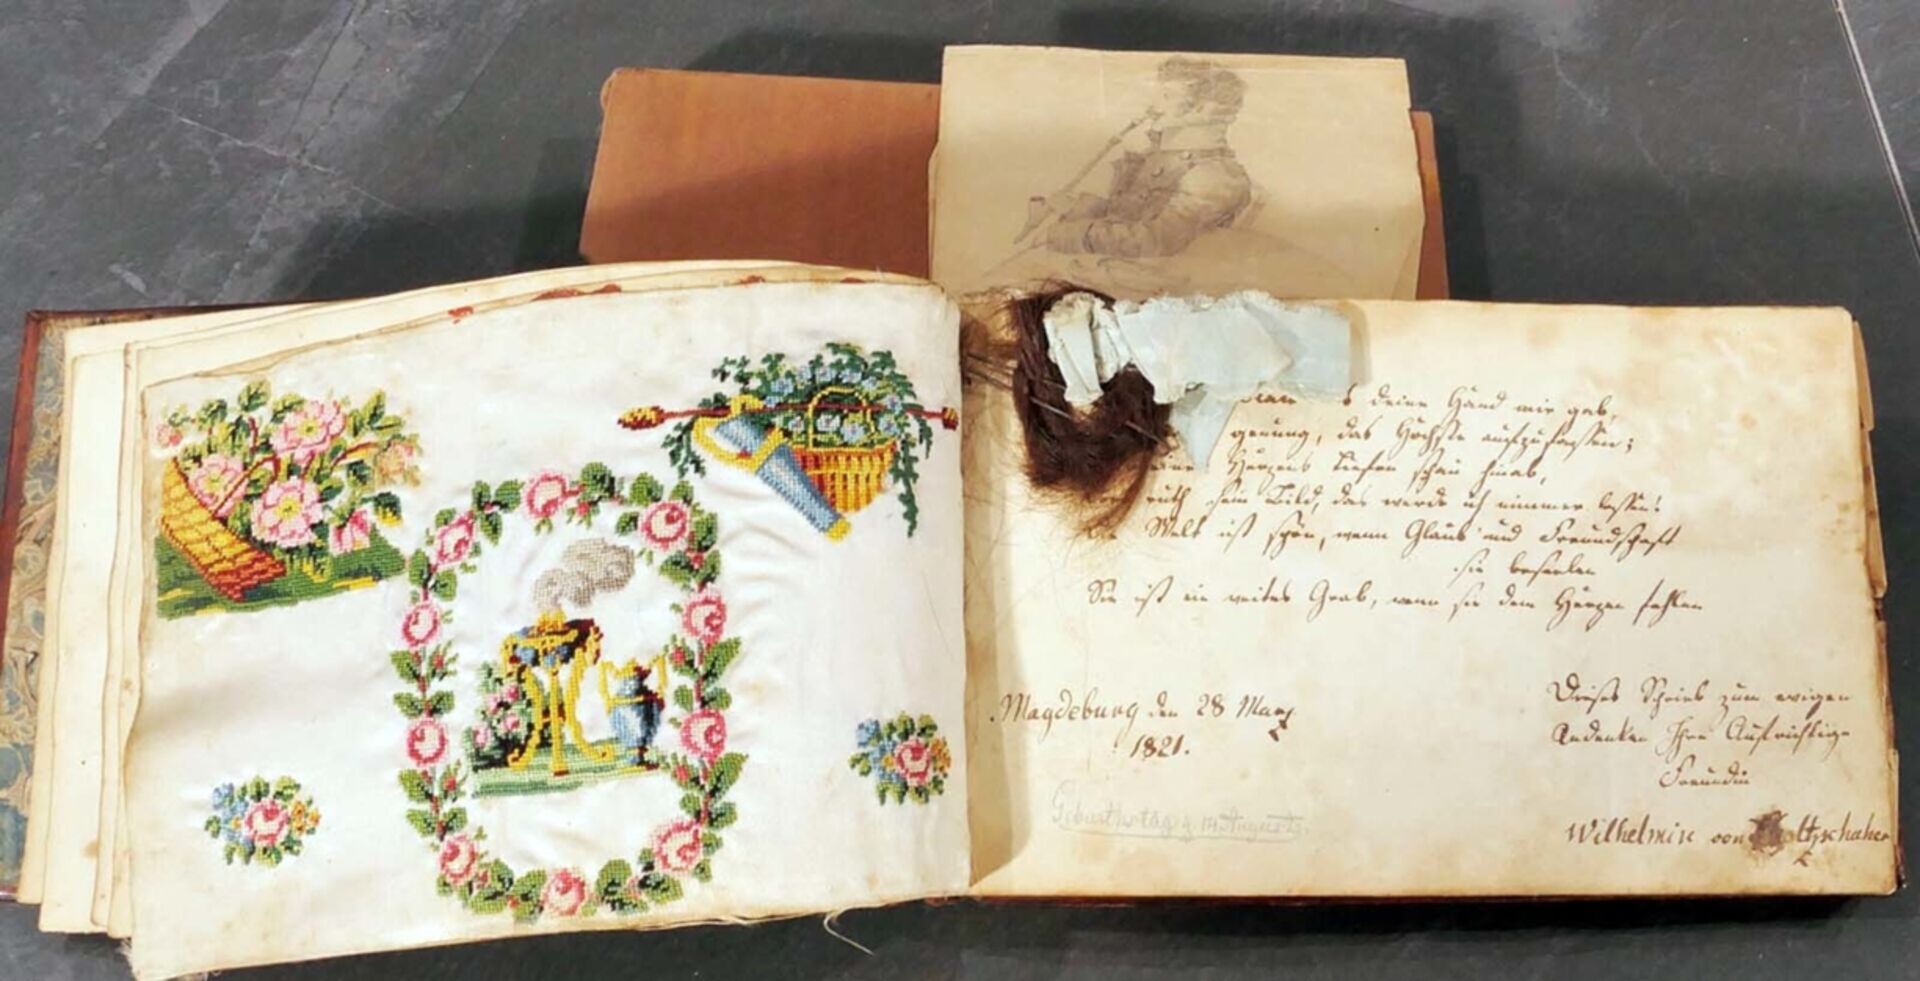 deine Hand mir gab,
das Höchste aufzufassen;
Herzens Tiefen schau hinab,
ruth sein Bild, das werde ich nimmer lassen!
Welt ist schön, wenn Glaub und Freundschaft
sie beseelen
Sie ist ein weites Grab, wenn sie dem Herzen fehlen
Magdeburg den 28 März
1821.
Dieses Schrieb zum ewigen
Andenken Ihre Aufrichtige
Freundin
Wilhelmine von
Geburtstag d. 14 August